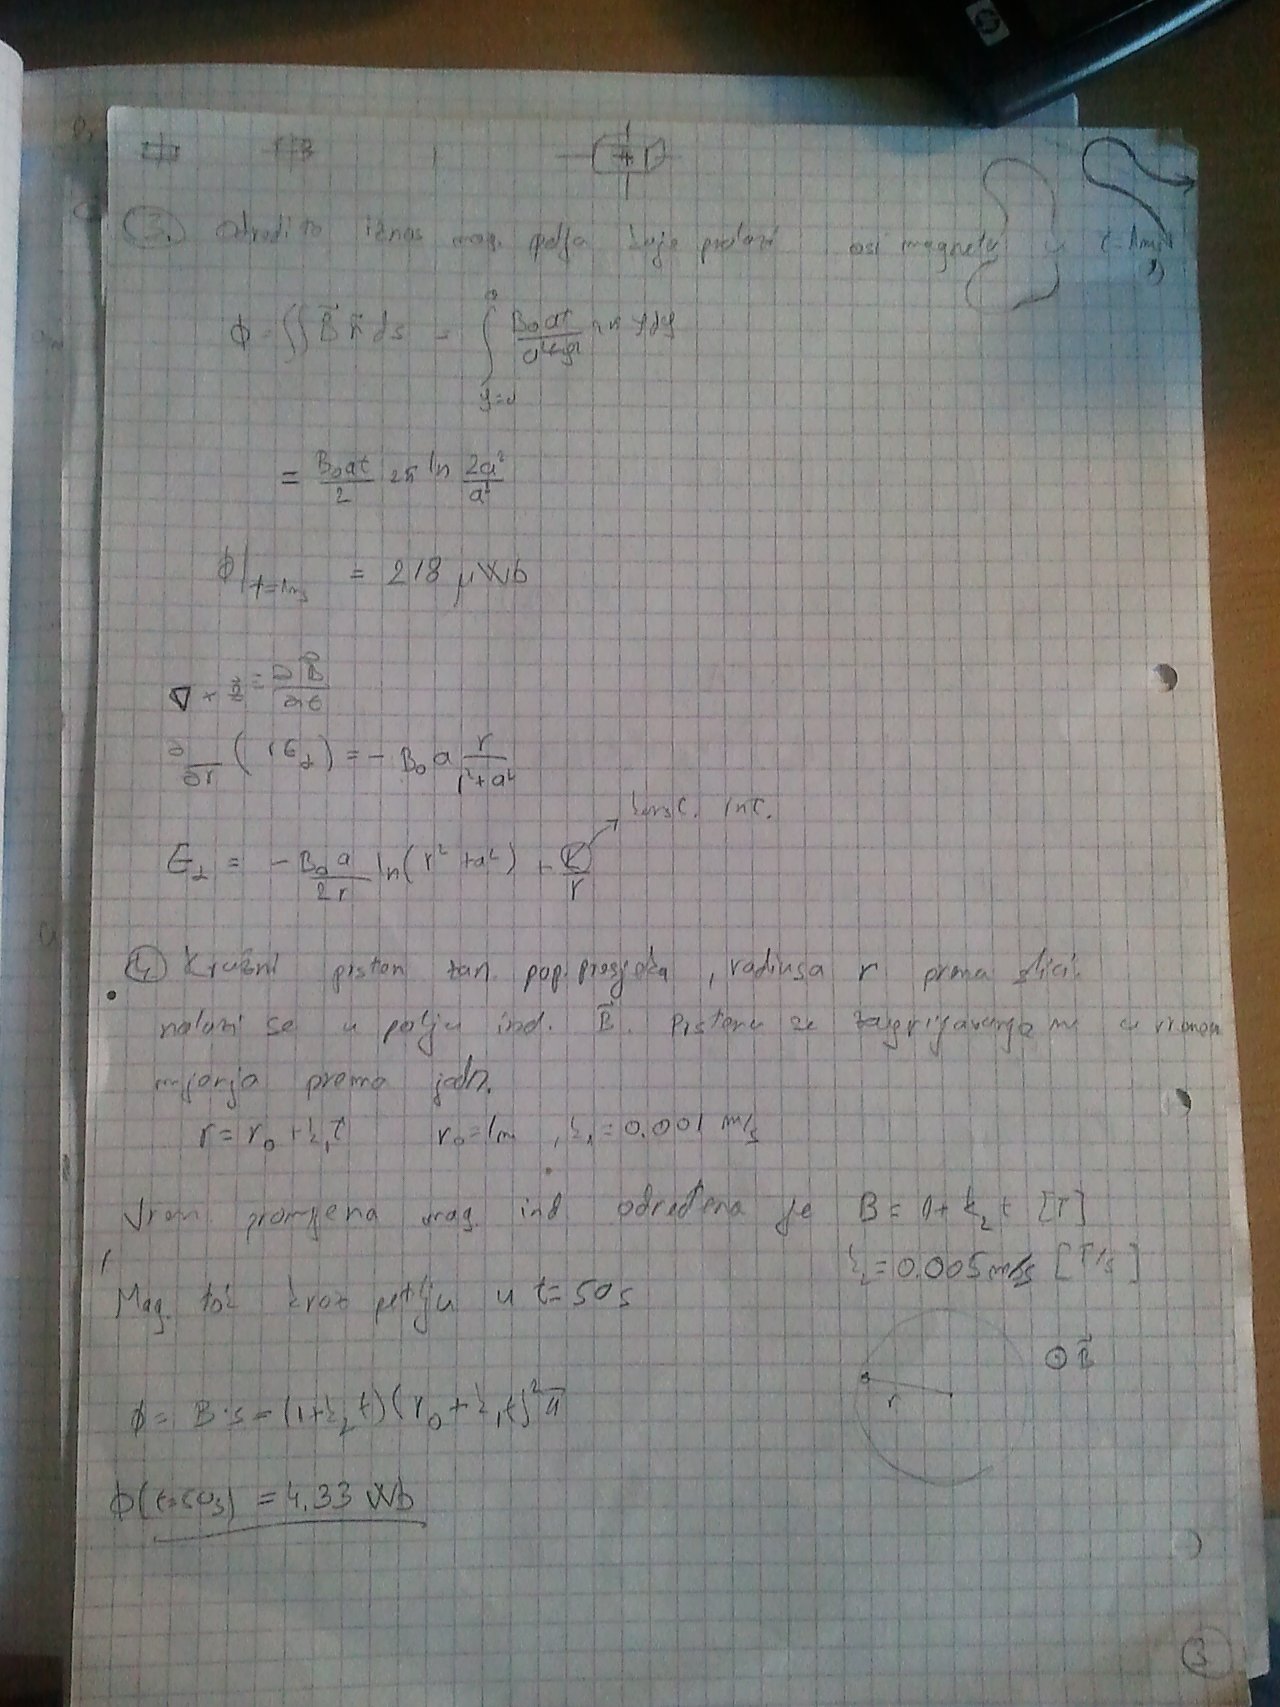 3. Odredite iznos mag. polja koje prolazi osi magneta u t=1ms
ϕ = ∬ B⃗ n⃗ ds = ∫_{y=0}^{a} \frac{B_0 at}{a^2+y^2} 2π y dy
= \frac{B_0 at}{2} 2π ln \frac{2a^2}{a^2}
ϕ|_{t=1ms} = 218 μWb
∇ × E⃗ = \frac{∂B⃗}{∂t}
\frac{∂}{∂r} ( rE_α ) = - B_0 a \frac{r}{r^2+a^2}
konst. int.
E_α = - \frac{B_0 a}{2r} ln(r^2 + a^2) + \frac{C}{r}
4. Kružni piston tan. pop. presjeka, radiusa r prema slici.
nalazi se u polju ind. B⃗. Piston se zagrijavanja
mjenja prema jedn.
r = r_0 + k_1 t r_0 = 1m , k_1 = 0.001 m/s
Vrem promjena mag. ind određena je B = 1 + k_2 t [T]
k_2 = 0.005 [T/s]
Mag. tok kroz petlju u t = 50s
B⃗
r
ϕ = B·s = (1+k_2 t)(r_0 + k_1 t)^2 π
ϕ(t=50s) = 4.33 Wb
3